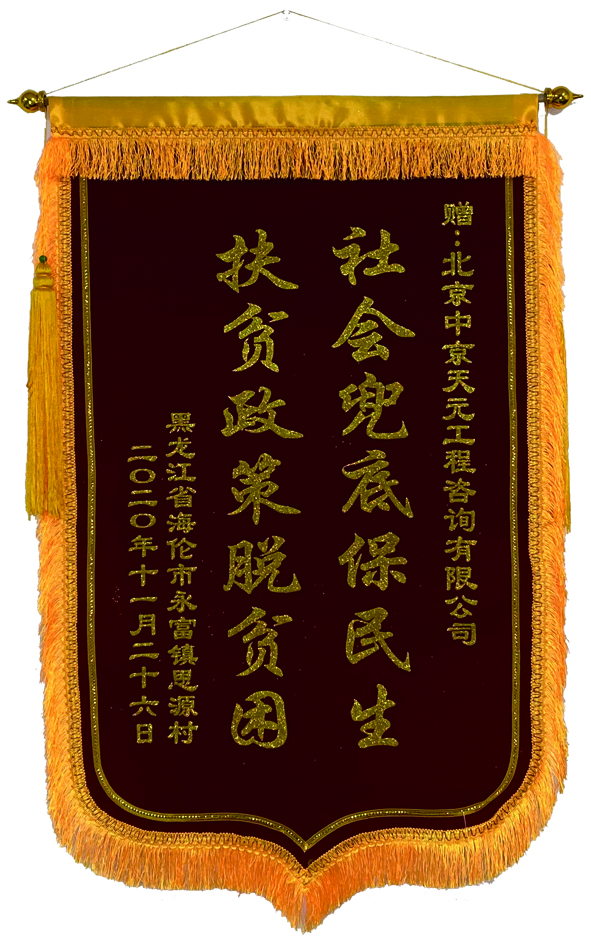 赠：北京中京天元工程咨询有限公司
社会兜底保民生
扶贫政策脱贫困
黑龙江省海伦市永富镇思源村
二〇二〇年十一月二十六日